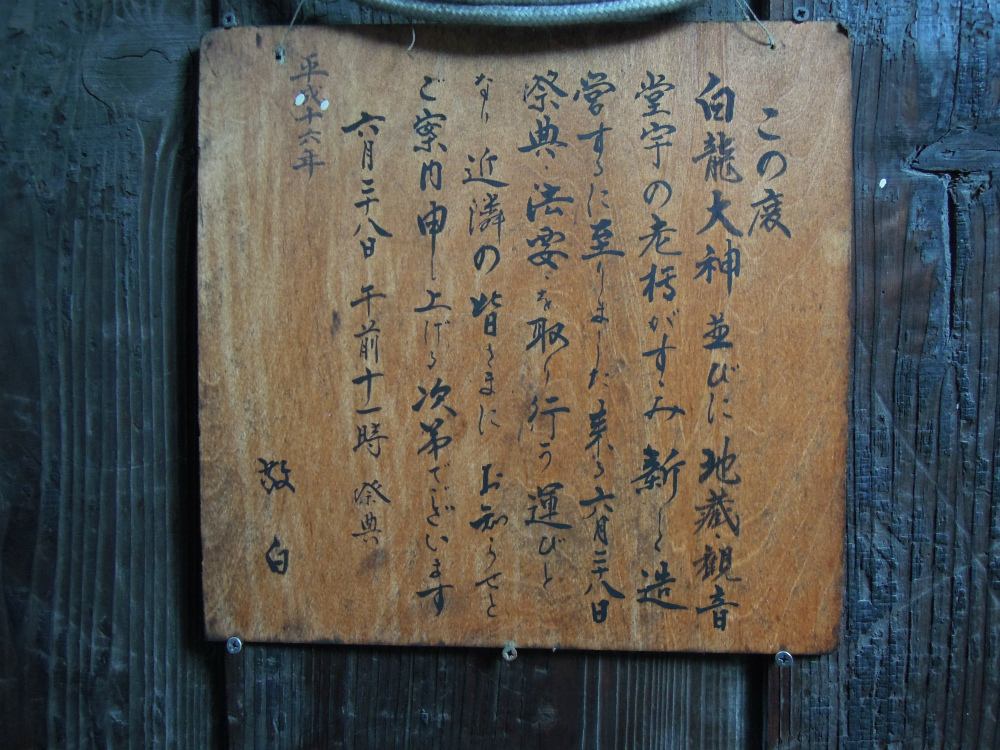 この度
白龍大神 並びに 地蔵、観音
堂宇の老朽がすゝみ 新しく造
営するに至りました 来る 六月二十八日
祭典、法要、を取り行う 運びと
なり 近隣の 皆さまに お知らせと
ご案内申し上げる 次第でございます
六月二十八日 午前十一時 祭典
平成十六年
敬白